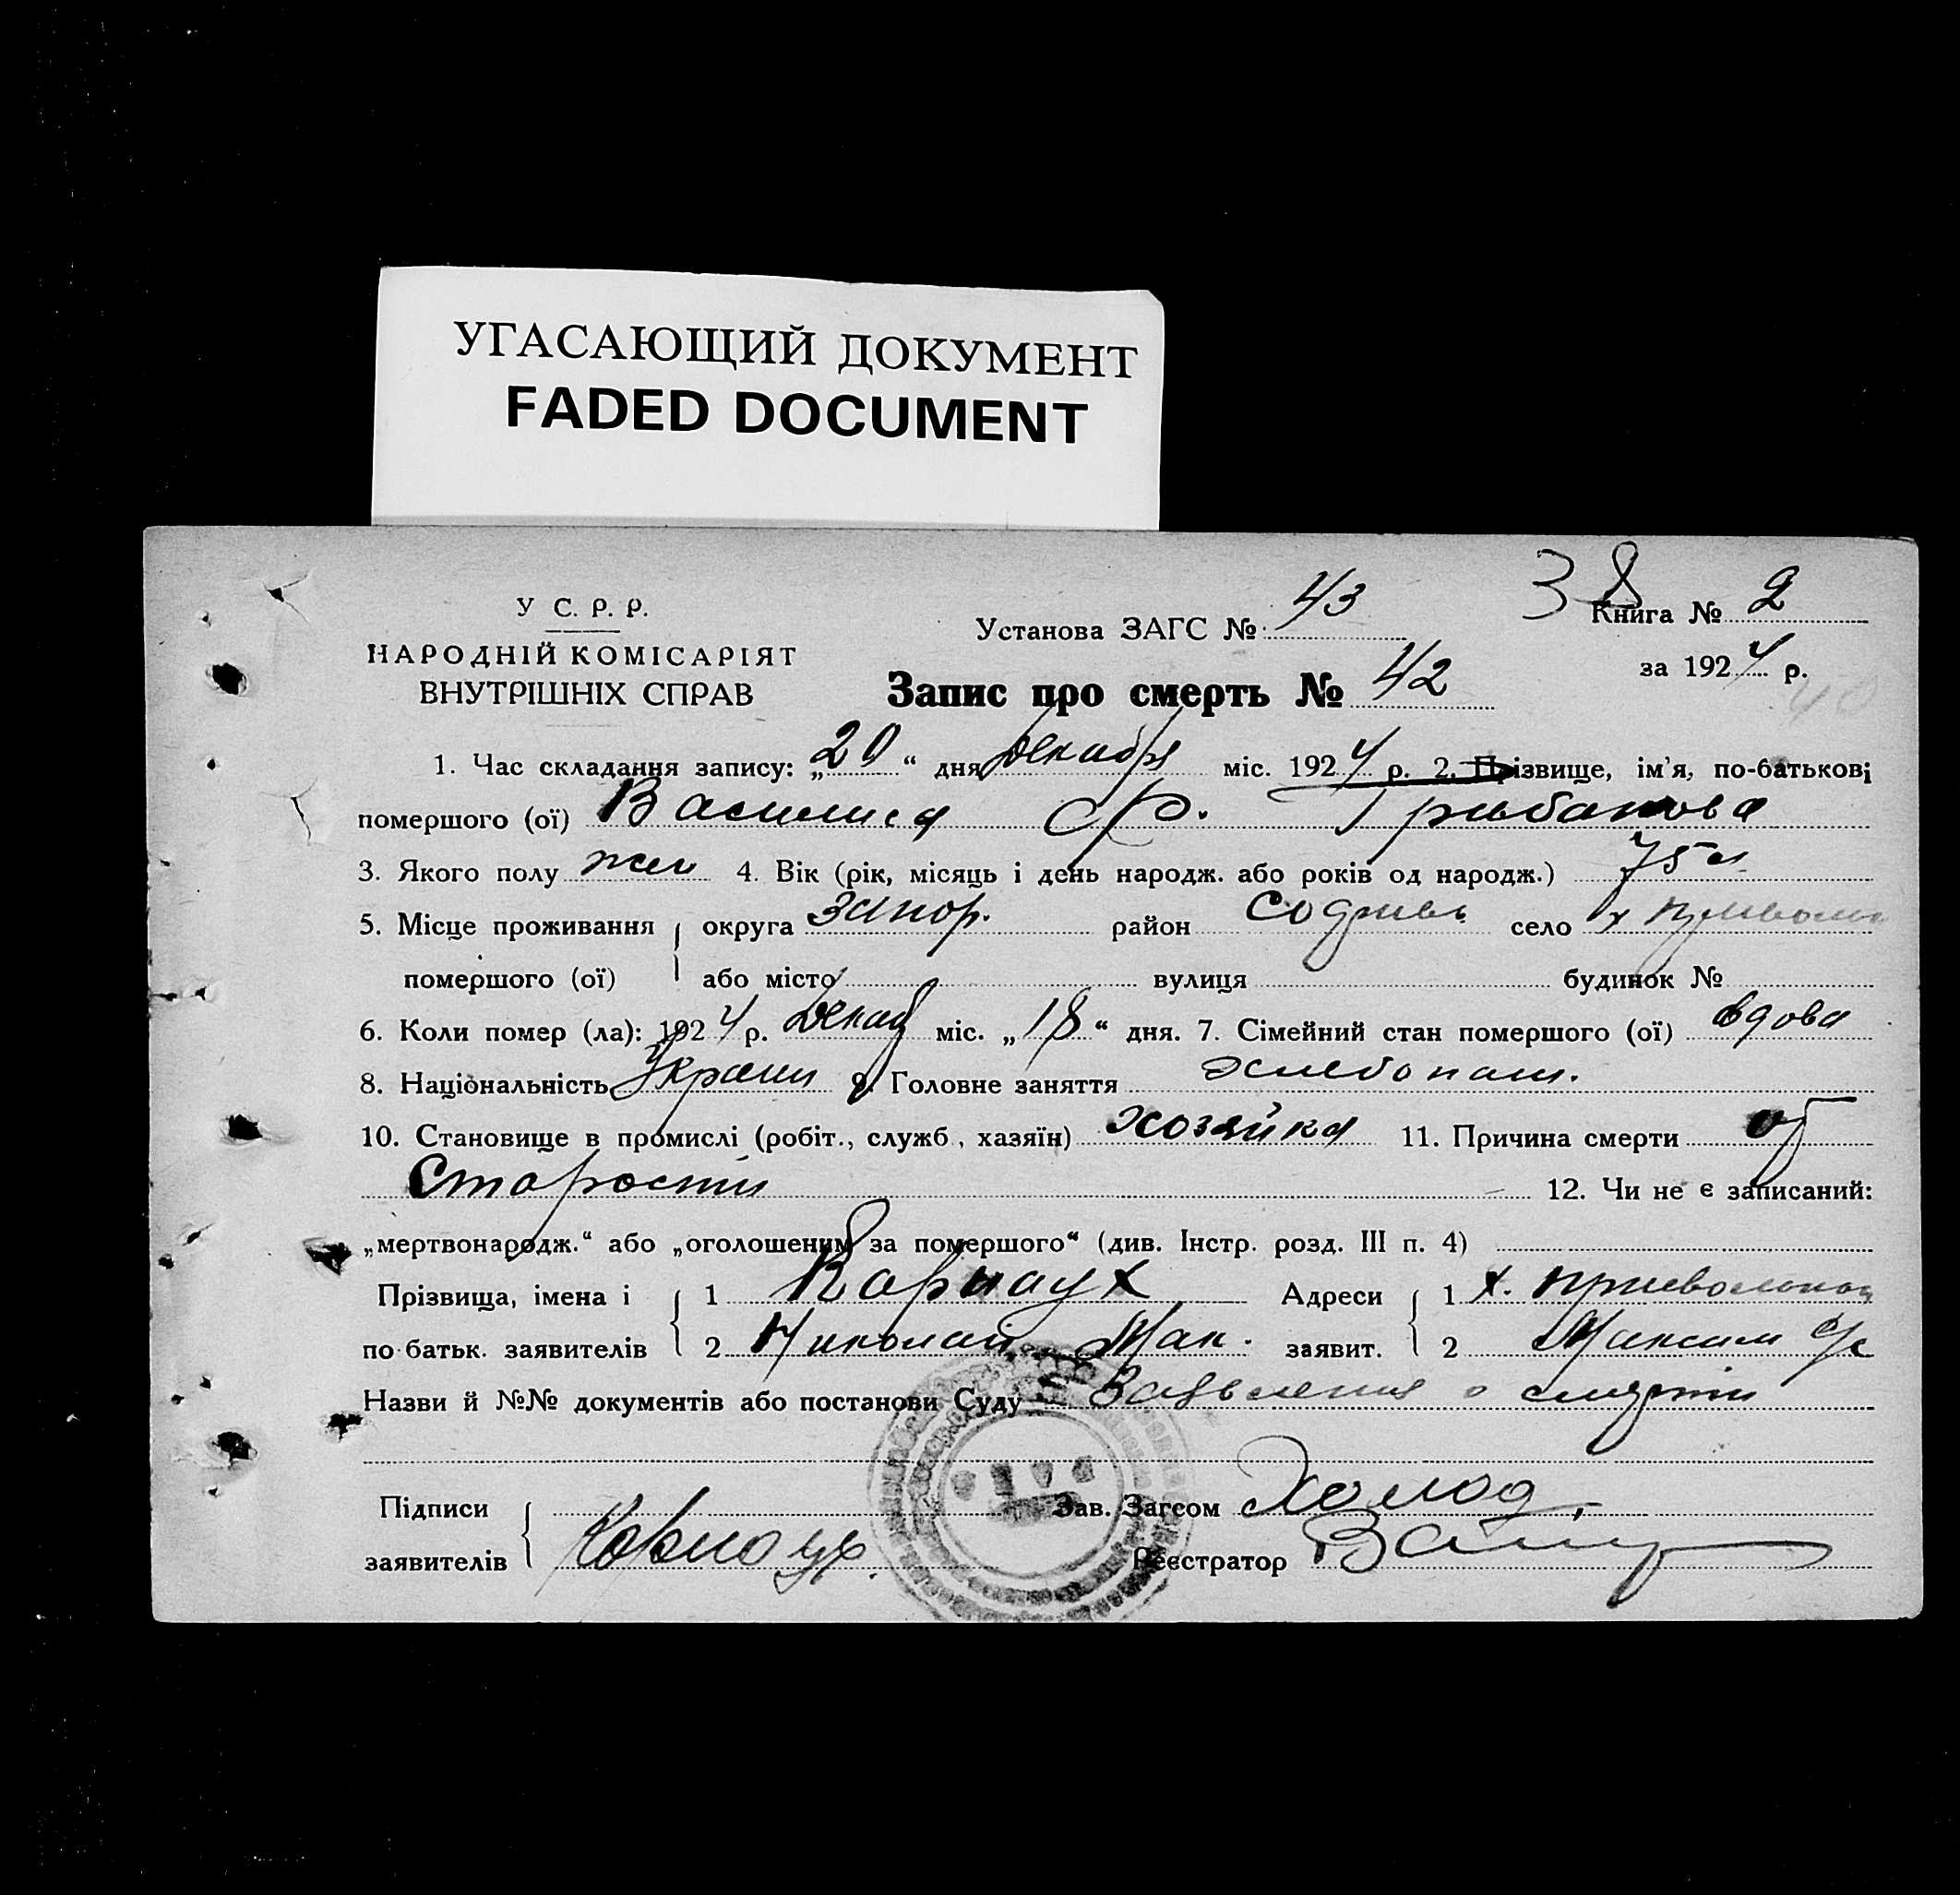 УГАСАЮЩИЙ ДОКУМЕНТ
FADED DOCUMENT
38
У С. Р. Р.
НАРОДНІЙ КОМІСАРІЯТ
ВНУТРІШНІХ СПРАВ
Установа ЗАГС № 43
Книга № 2
за 1924 р.
Запис про смерть № 42
1. Час складання запису: „20“ дня декабр міс. 1924 р. 2. Прізвище, ім'я, по-батькові
помершого (ої) Василиса Ф. Грибанова
3. Якого полу жен 4. Вік (рік, місяць і день народж. або років од народж.) 75 л
5. Місце проживання округа Запор. район село х
помершого (ої) або місто вулиця будинок №
6. Коли помер (ла): 1924 р. Декаб міс. „18“ дня. 7. Сімейний стан помершого (ої) вдова
8. Національність Украин 9. Головне заняття хлебопаш.
10. Становище в промислі (робіт., служб., хазяїн) хозяйка 11. Причина смерти от
Старости 12. Чи не є записаний:
„мертвонародж.“ або „оголошеним за помершого“ (див. Інстр. розд. III п. 4)
Прізвища, імена і 1 Карнаух Адреси 1 х. Привольной
по-батьк. заявителів 2 Николай Мак. заявит. 2 Максим
Назви й №№ документів або постанови Суду Заявления о смерти
Підписи Зав. Загсом Холод
заявителів Карнаух Реєстратор